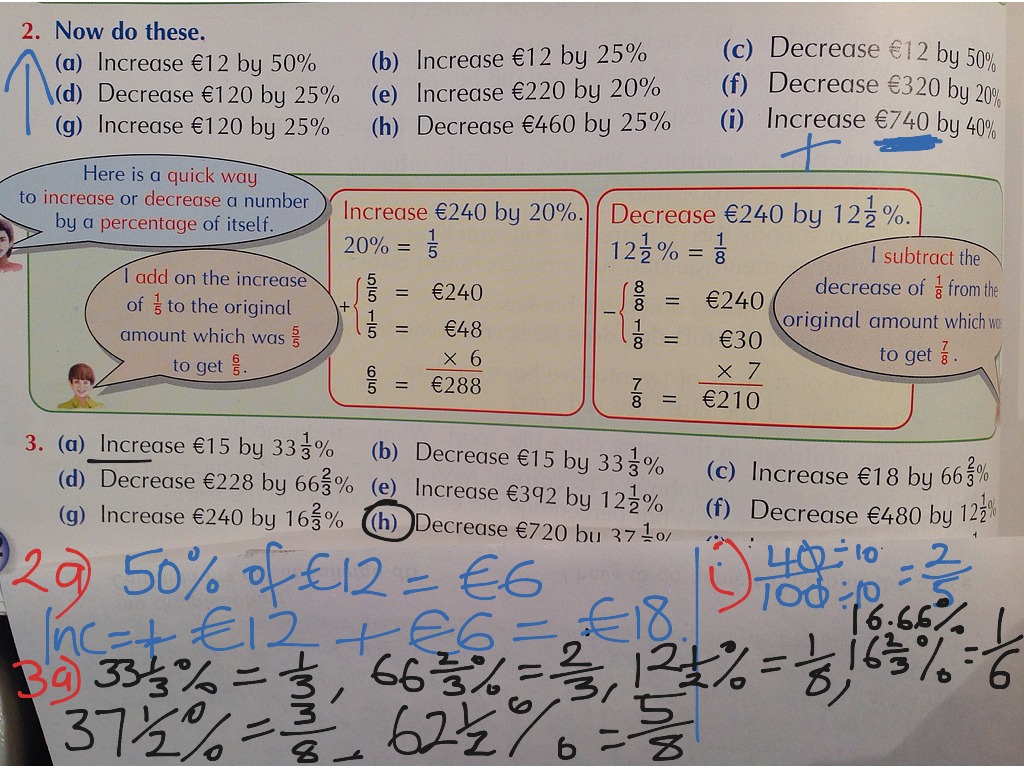 2. Now do these.
(a) Increase €12 by 50% (b) Increase €12 by 25% (c) Decrease €12 by 50%
(d) Decrease €120 by 25% (e) Increase €220 by 20% (f) Decrease €320 by 20%
(g) Increase €120 by 25% (h) Decrease €460 by 25% (i) Increase €740 by 40%
+
Here is a quick way
to increase or decrease a number
by a percentage of itself.
I add on the increase
of 1/5 to the original
amount which was 5/5
to get 6/5.
Increase €240 by 20%.
20% = 1/5
+ { 5/5 = €240
1/5 = €48
× 6
6/5 = €288
Decrease €240 by 12 1/2 %.
12 1/2 % = 1/8
− { 8/8 = €240
1/8 = €30
× 7
7/8 = €210
I subtract the
decrease of 1/8 from the
original amount which
to get 7/8.
3. (a) Increase €15 by 33 1/3 % (b) Decrease €15 by 33 1/3 % (c) Increase €18 by 66 2/3 %
(d) Decrease €228 by 66 2/3 % (e) Increase €392 by 12 1/2 % (f) Decrease €480 by 12 1/2 %
(g) Increase €240 by 16 2/3 % (h) Decrease €720 by 37 1/2 %
2a) 50% of €12 = €6
Inc = + €12 + €6 = €18.
i) 40/100 ÷10/÷10 = 2/5
16.66%
3a) 33 1/3 % = 1/3, 66 2/3 % = 2/3, 12 1/2 % = 1/8, 16 2/3 % = 1/6
37 1/2 % = 3/8, 62 1/2 % = 5/8